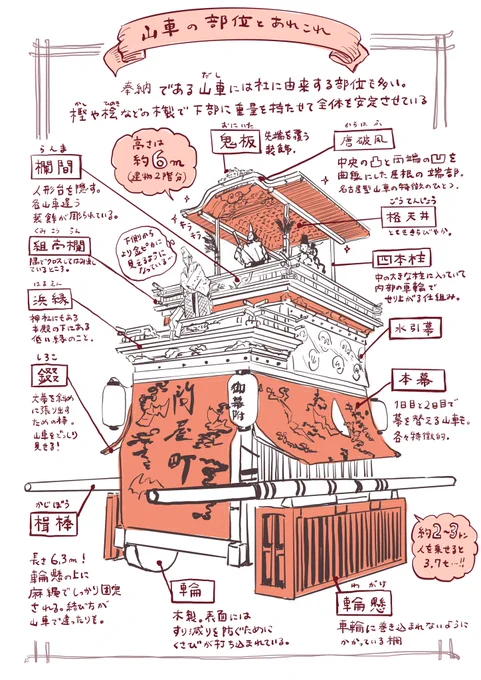 山車の部位とあれこれ
奉納である山車には社に由来する部位も多い。
だし
樫や桧などの木製で下部に重量を持たせて全体を安定させている
かし
ひのき
高さは
約6m
(建物2階分)
おにいた
鬼板
先端を覆う
装飾。
からはふ
唐破風
中央の凸と両端の凹を
曲線にした屋根の端部。
名古屋型山車の特徴のひとつ。
らんま
欄間
人形台を隠す。
各山車違う
装飾が彫られている。
ごうてんじょう
格天井
とてもきらびやか。
くみこうらん
組高欄
隅でクロスしてはみ出し
ているところ。
下側から
より金ピカに
見えるように
なっている〜
キラキラ
四本柱
中の大きな柱に入っていて
内部の車輪で
せり上がる仕組み。
はまえん
浜縁
神社にもある
本殿の下にある
低い縁のこと。
水引幕
しころ
錣
大幕を斜め
に張り出す
ための棒。
山車をどっしり
見せる!
本幕
1日目と2日目で
幕を替える山車も。
各々特徴的。
問屋町
御幕附
かじぼう
楫棒
長さ6.3m!
輪懸の上に
麻縄でしっかり固定
される。結び方が
山車で違ったりも。
輪
木製。表面には
すり減りを防ぐために
くさびが打ち込まれている。
約2〜3t
人を乗せると
3.7t…!!
わがけ
輪懸
車輪に巻き込まれないように
かかっている柵